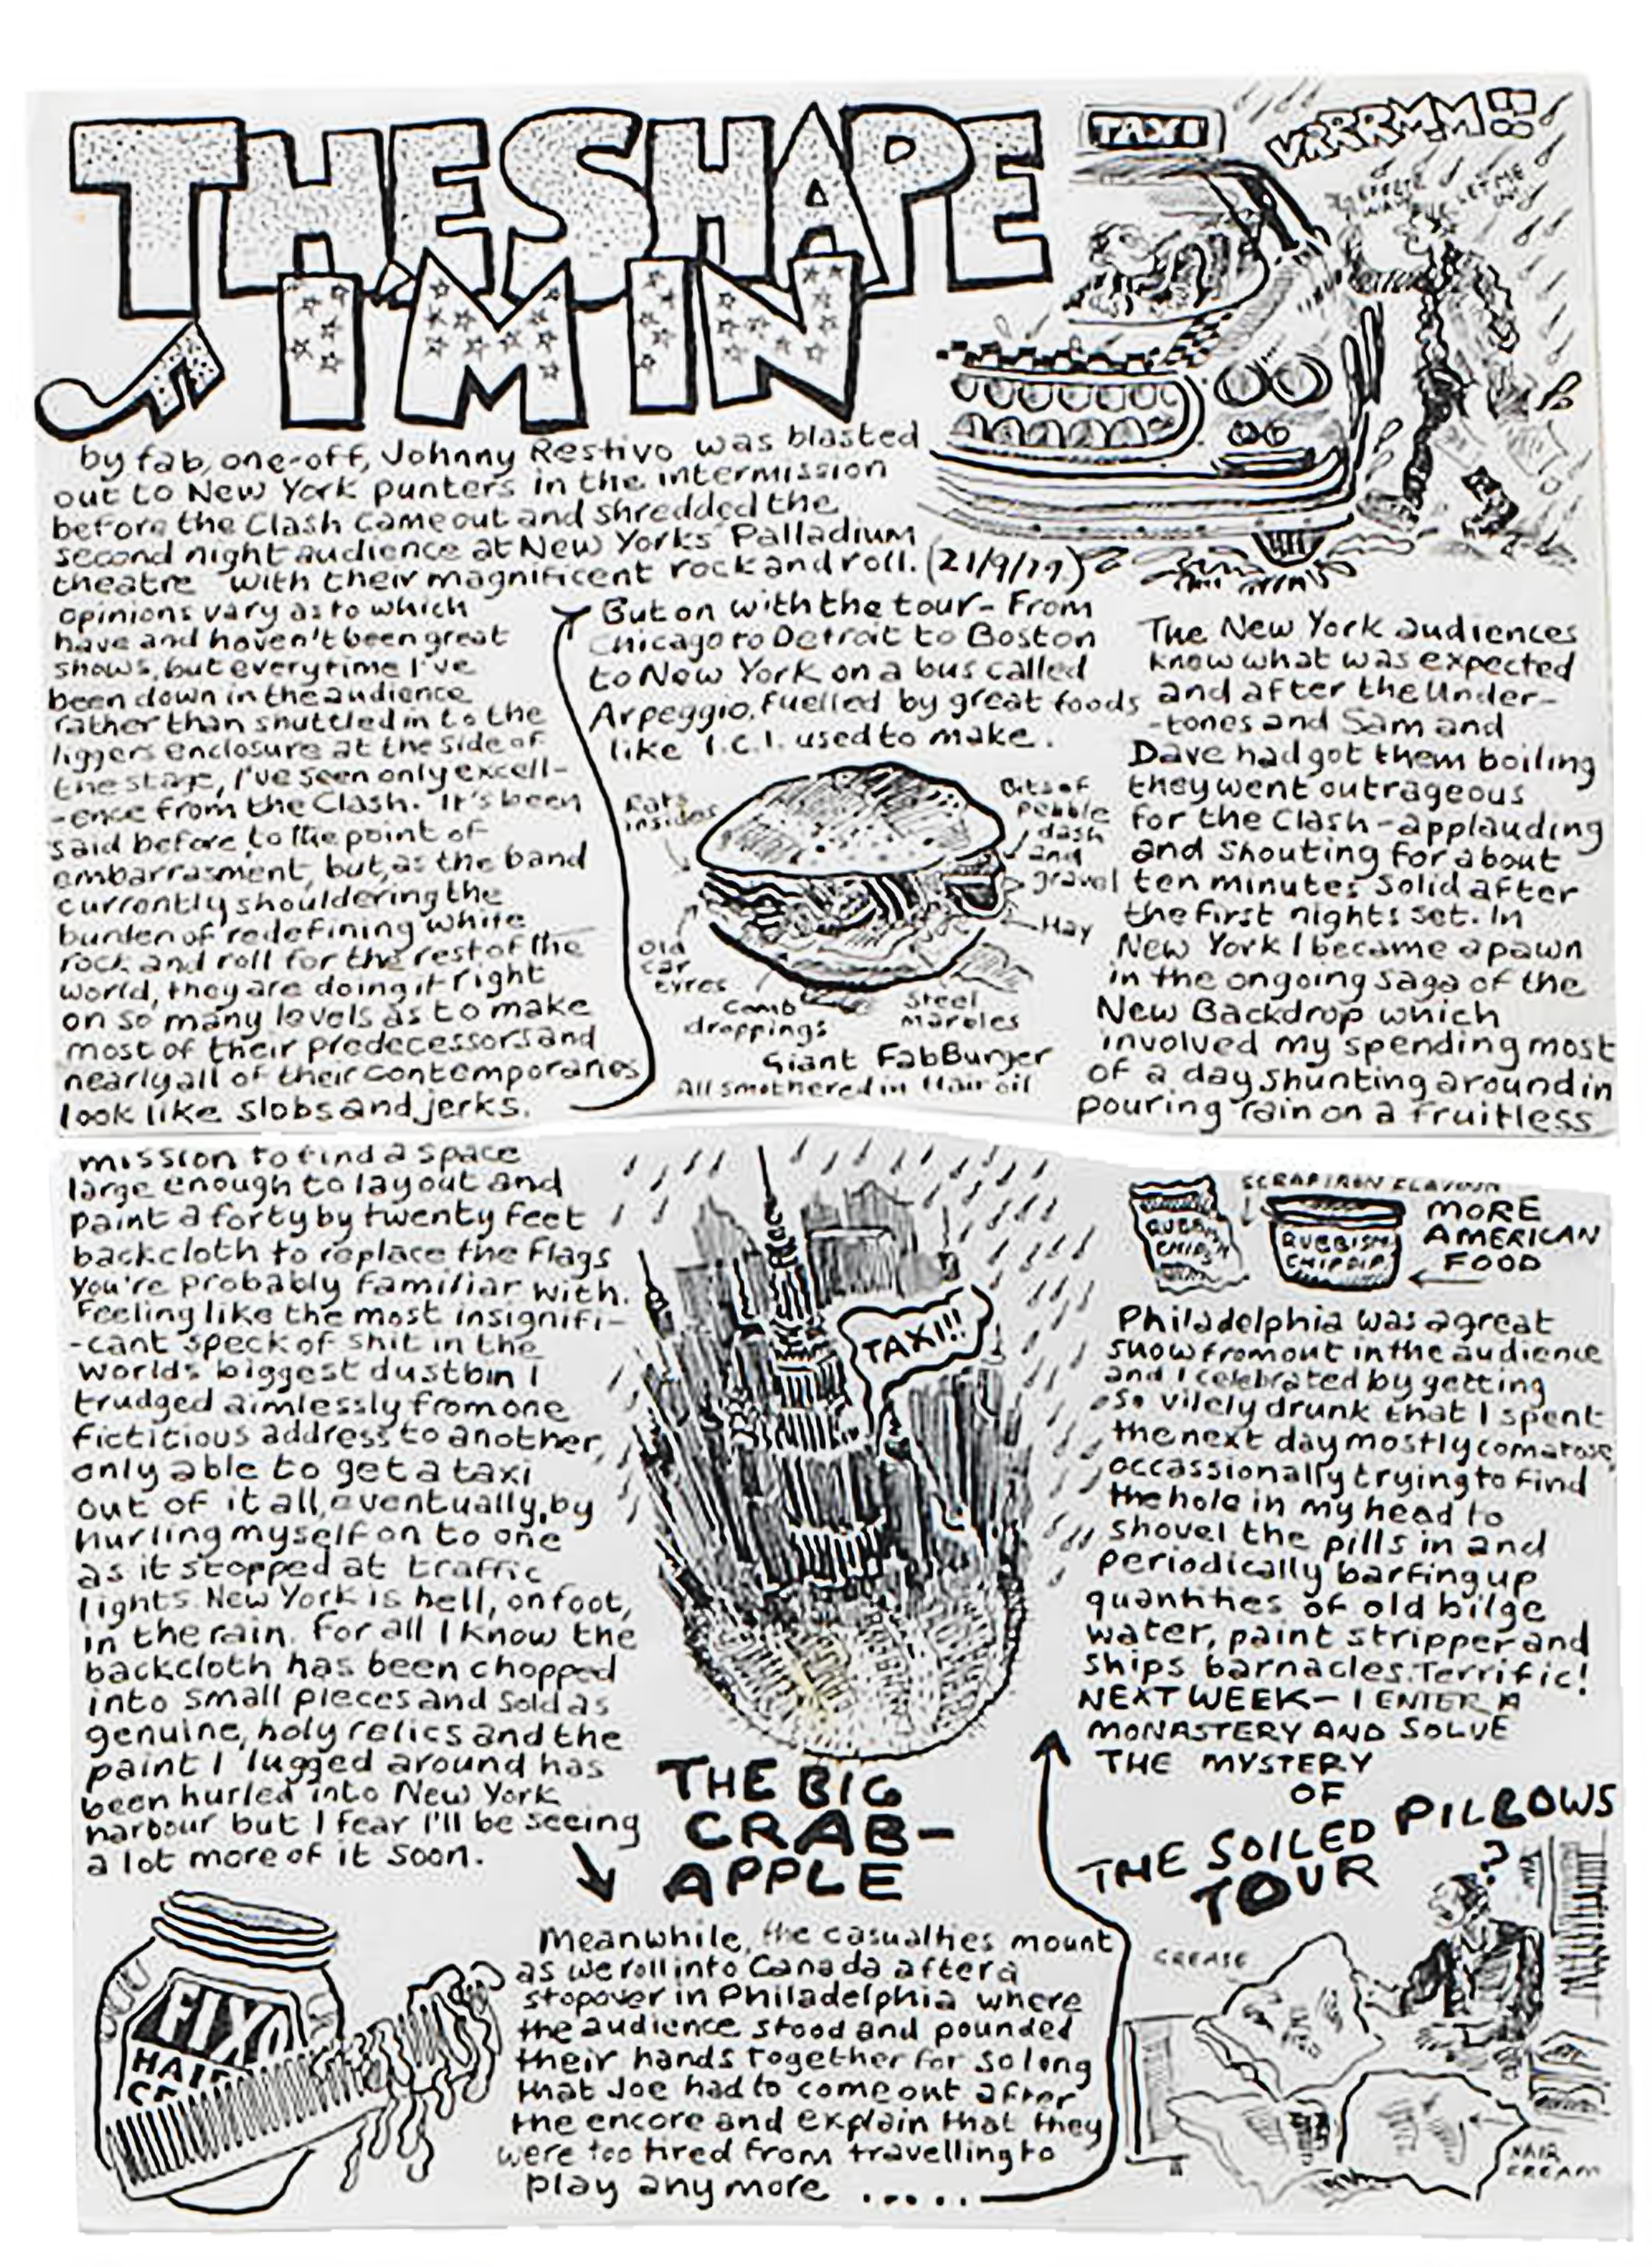 THE SHAPE
I'M IN
TAXI
VRRRMM!!
LET ME
by fab, one-off, Johnny Restivo was blasted
out to New York punters in the intermission
before the Clash came out and shredded the
second night audience at New Yorks' Palladium
theatre with their magnificent rock and roll. (21/9/79)
opinions vary as to which
have and haven't been great
shows, but everytime I've
been down in the audience
rather than shuttled in to the
liggers enclosure at the side of
the stage, I've seen only excell-
-ence from the Clash. It's been
said before, to the point of
embarrasment, but, as the band
currently shouldering the
burden of redefining white
rock and roll for the rest of the
world, they are doing it right
on so many levels as to make
most of their predecessors and
nearly all of their contemporaries
look like slobs and jerks.
But on with the tour - From
Chicago to Detroit to Boston
to New York on a bus called
Arpeggio, fuelled by great foods
like I.C.I. used to make.
Rats
insides
Bits of
pebble
dash
and
gravel
Hay
Old
car
tyres
Comb
droppings
Steel
marbles
Giant FabBurger
All smothered in Hair oil
The New York audiences
know what was expected
and after the Under-
-tones and Sam and
Dave had got them boiling
they went outrageous
for the Clash - applauding
and shouting for about
ten minutes solid after
the first nights set. In
New York I became a pawn
in the ongoing saga of the
New Backdrop which
involved my spending most
of a day shunting around in
pouring rain on a fruitless
mission to find a space
large enough to lay out and
paint a forty by twenty feet
backcloth to replace the flags
you're probably familiar with.
Feeling like the most insignifi-
-cant speck of shit in the
worlds biggest dustbin I
trudged aimlessly from one
fictitious address to another,
only able to get a taxi
out of it all, eventually, by
hurling myself on to one
as it stopped at traffic
lights. New York is hell, on foot,
in the rain. For all I know the
backcloth has been chopped
into small pieces and sold as
genuine, holy relics and the
paint I lugged around has
been hurled into New York
harbour but I fear I'll be seeing
a lot more of it soon.
TAXI!!
THE BIG
CRAB-
APPLE
FIX
HAIR
Meanwhile, the casualties mount
as we roll into Canada after a
stopover in Philadelphia where
the audience stood and pounded
their hands together for so long
that Joe had to come out after
the encore and explain that they
were too tired from travelling to
play any more .....
SCRAP IRON FLAVOUR
RUBBISH
CHIPS
RUBBISH
CHIP DIP
MORE
AMERICAN
FOOD
Philadelphia was a great
show from out in the audience
and I celebrated by getting
so vilely drunk that I spent
the next day mostly comatose,
occassionally trying to find
the hole in my head to
shovel the pills in and
periodically barfing up
quantities of old bilge
water, paint stripper and
ships barnacles. Terrific!
NEXT WEEK - I ENTER A
MONASTERY AND SOLVE
THE MYSTERY
OF
THE SOILED PILLOWS
TOUR
?
GREASE
HAIR
CREAM